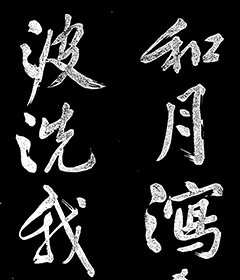 和月瀉
波洗我